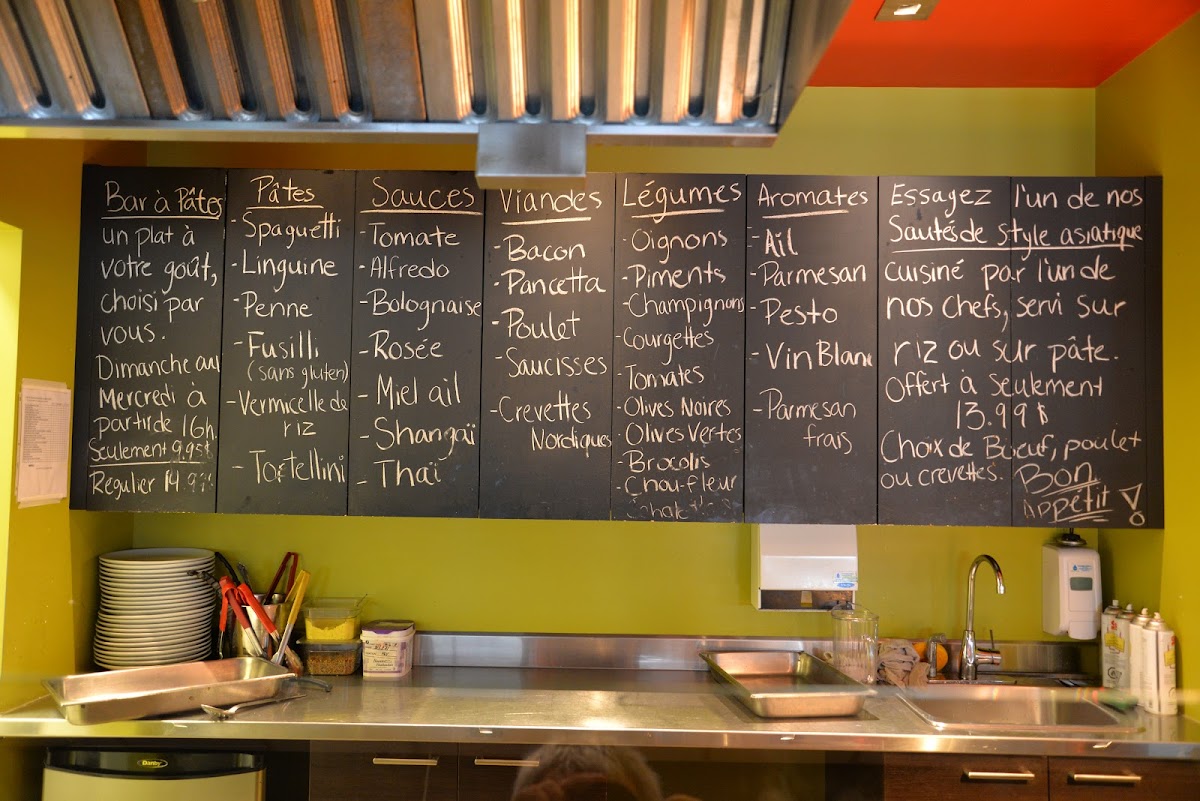 Bar à Pâtes
un plat à
votre goût,
choisi par
vous.
Dimanche au
Mercredi à
partir de 16h.
Seulement 9.95$
Régulier 14.99$
Pâtes
- Spaguetti
- Linguine
- Penne
- Fusilli
(sans gluten)
- Vermicelle de
riz
- Tortellini
Sauces
- Tomate
- Alfredo
- Bolognaise
- Rosée
- Miel ail
- Shangaï
- Thaï
Viandes
- Bacon
- Pancetta
- Poulet
- Saucisses
- Crevettes
Nordiques
Légumes
- Oignons
- Piments
- Champignons
Courgettes
- Tomates
- Olives Noires
- Olives Vertes
- Brocolis
- Chou-fleur
Aromates
- Ail
- Parmesan
- Pesto
- Vin Blanc
- Parmesan
frais
Essayez l'un de nos
Sautés de style asiatique
cuisiné par l'un de
nos chefs, servi sur
riz ou sur pâte.
Offert à seulement
13.99$
Choix de Bœuf, poulet
ou crevettes.
Bon
Appétit!
Danby